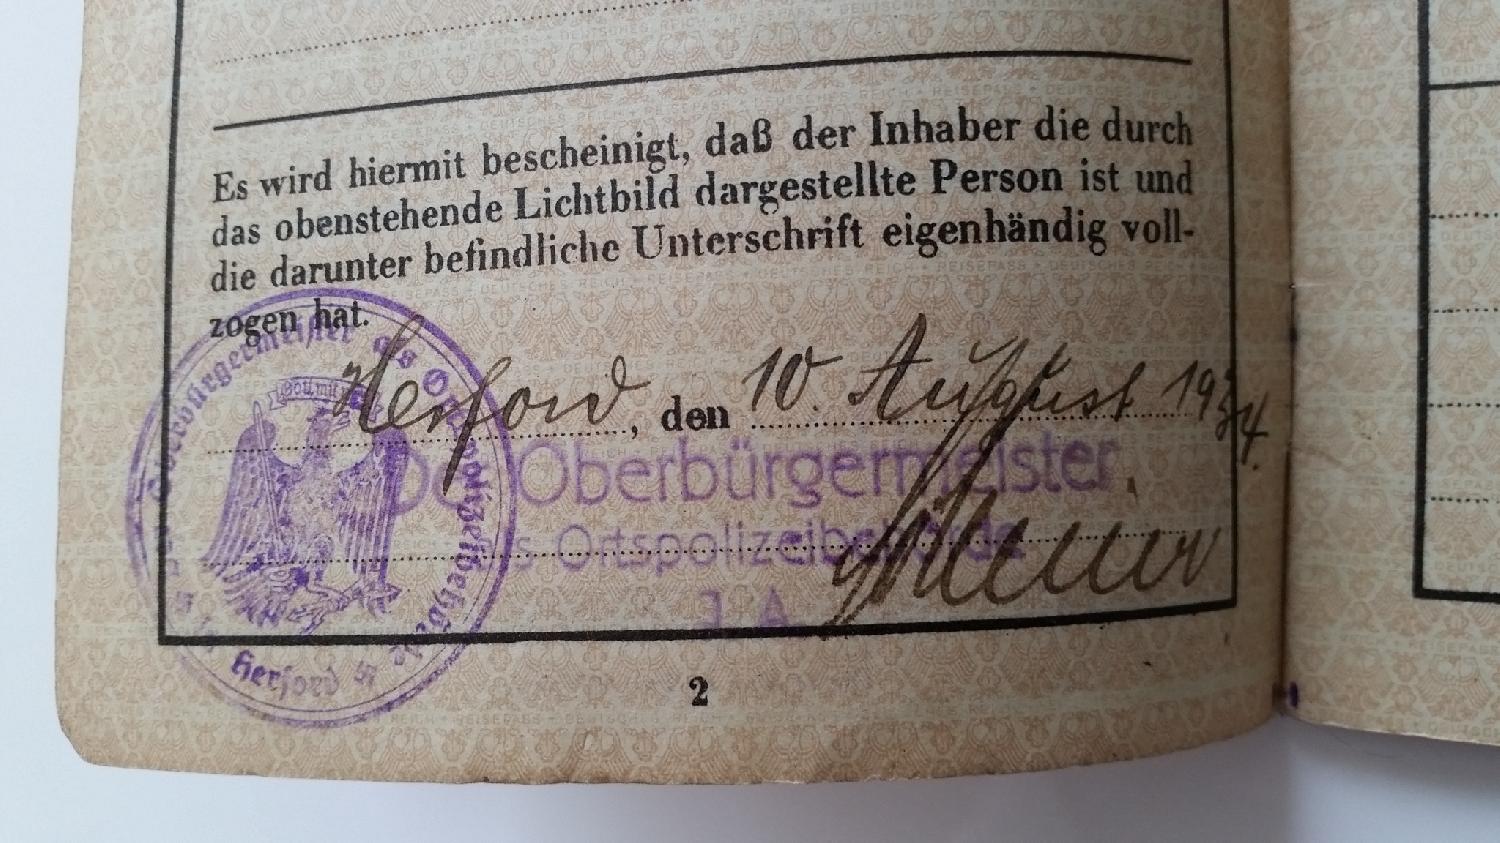 Es wird hiermit bescheinigt, daß der Inhaber die durch
das obenstehende Lichtbild dargestellte Person ist und
die darunter befindliche Unterschrift eigenhändig voll-
zogen hat.
Herford, den 10. August 1934.
Der Oberbürgermeister
als Ortspolizeibehörde
J. A.
Der Oberbürgermeister als Ortspolizeibehörde
Gott mit
Herford
2